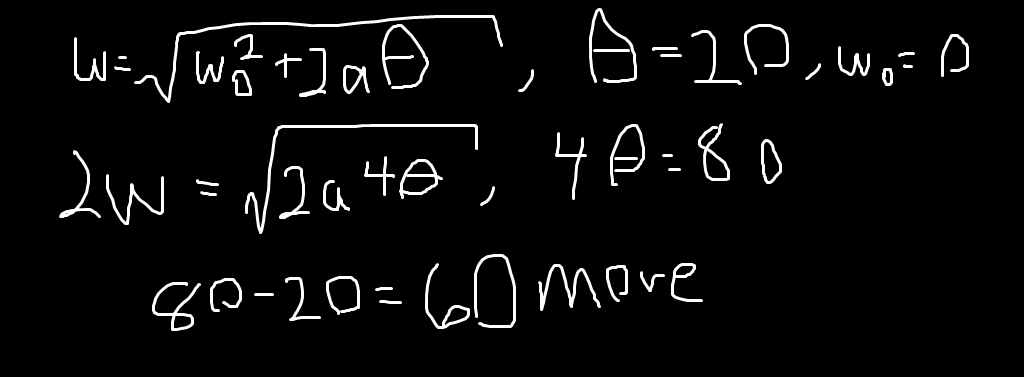 w=√(w₀²+2aθ), θ=20, w₀=0
2w=√(2a4θ), 4θ=80
80-20=60 more